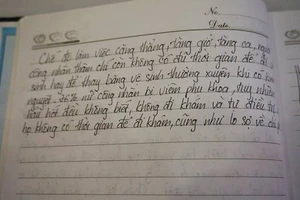 No.
Date
Chế độ làm việc căng thẳng, tăng giờ, tăng ca, người
công nhân thậm chí còn không có đủ thời gian để đi
sinh hay để thay băng vệ sinh thường xuyên khi có kinh
nguyệt. 36% nữ công nhân bị viêm phụ khoa, tuy nhiên
hầu hết đều không biết, không đi khám và tự điều trị
họ không có thời gian để đi khám, cũng như lo sợ về